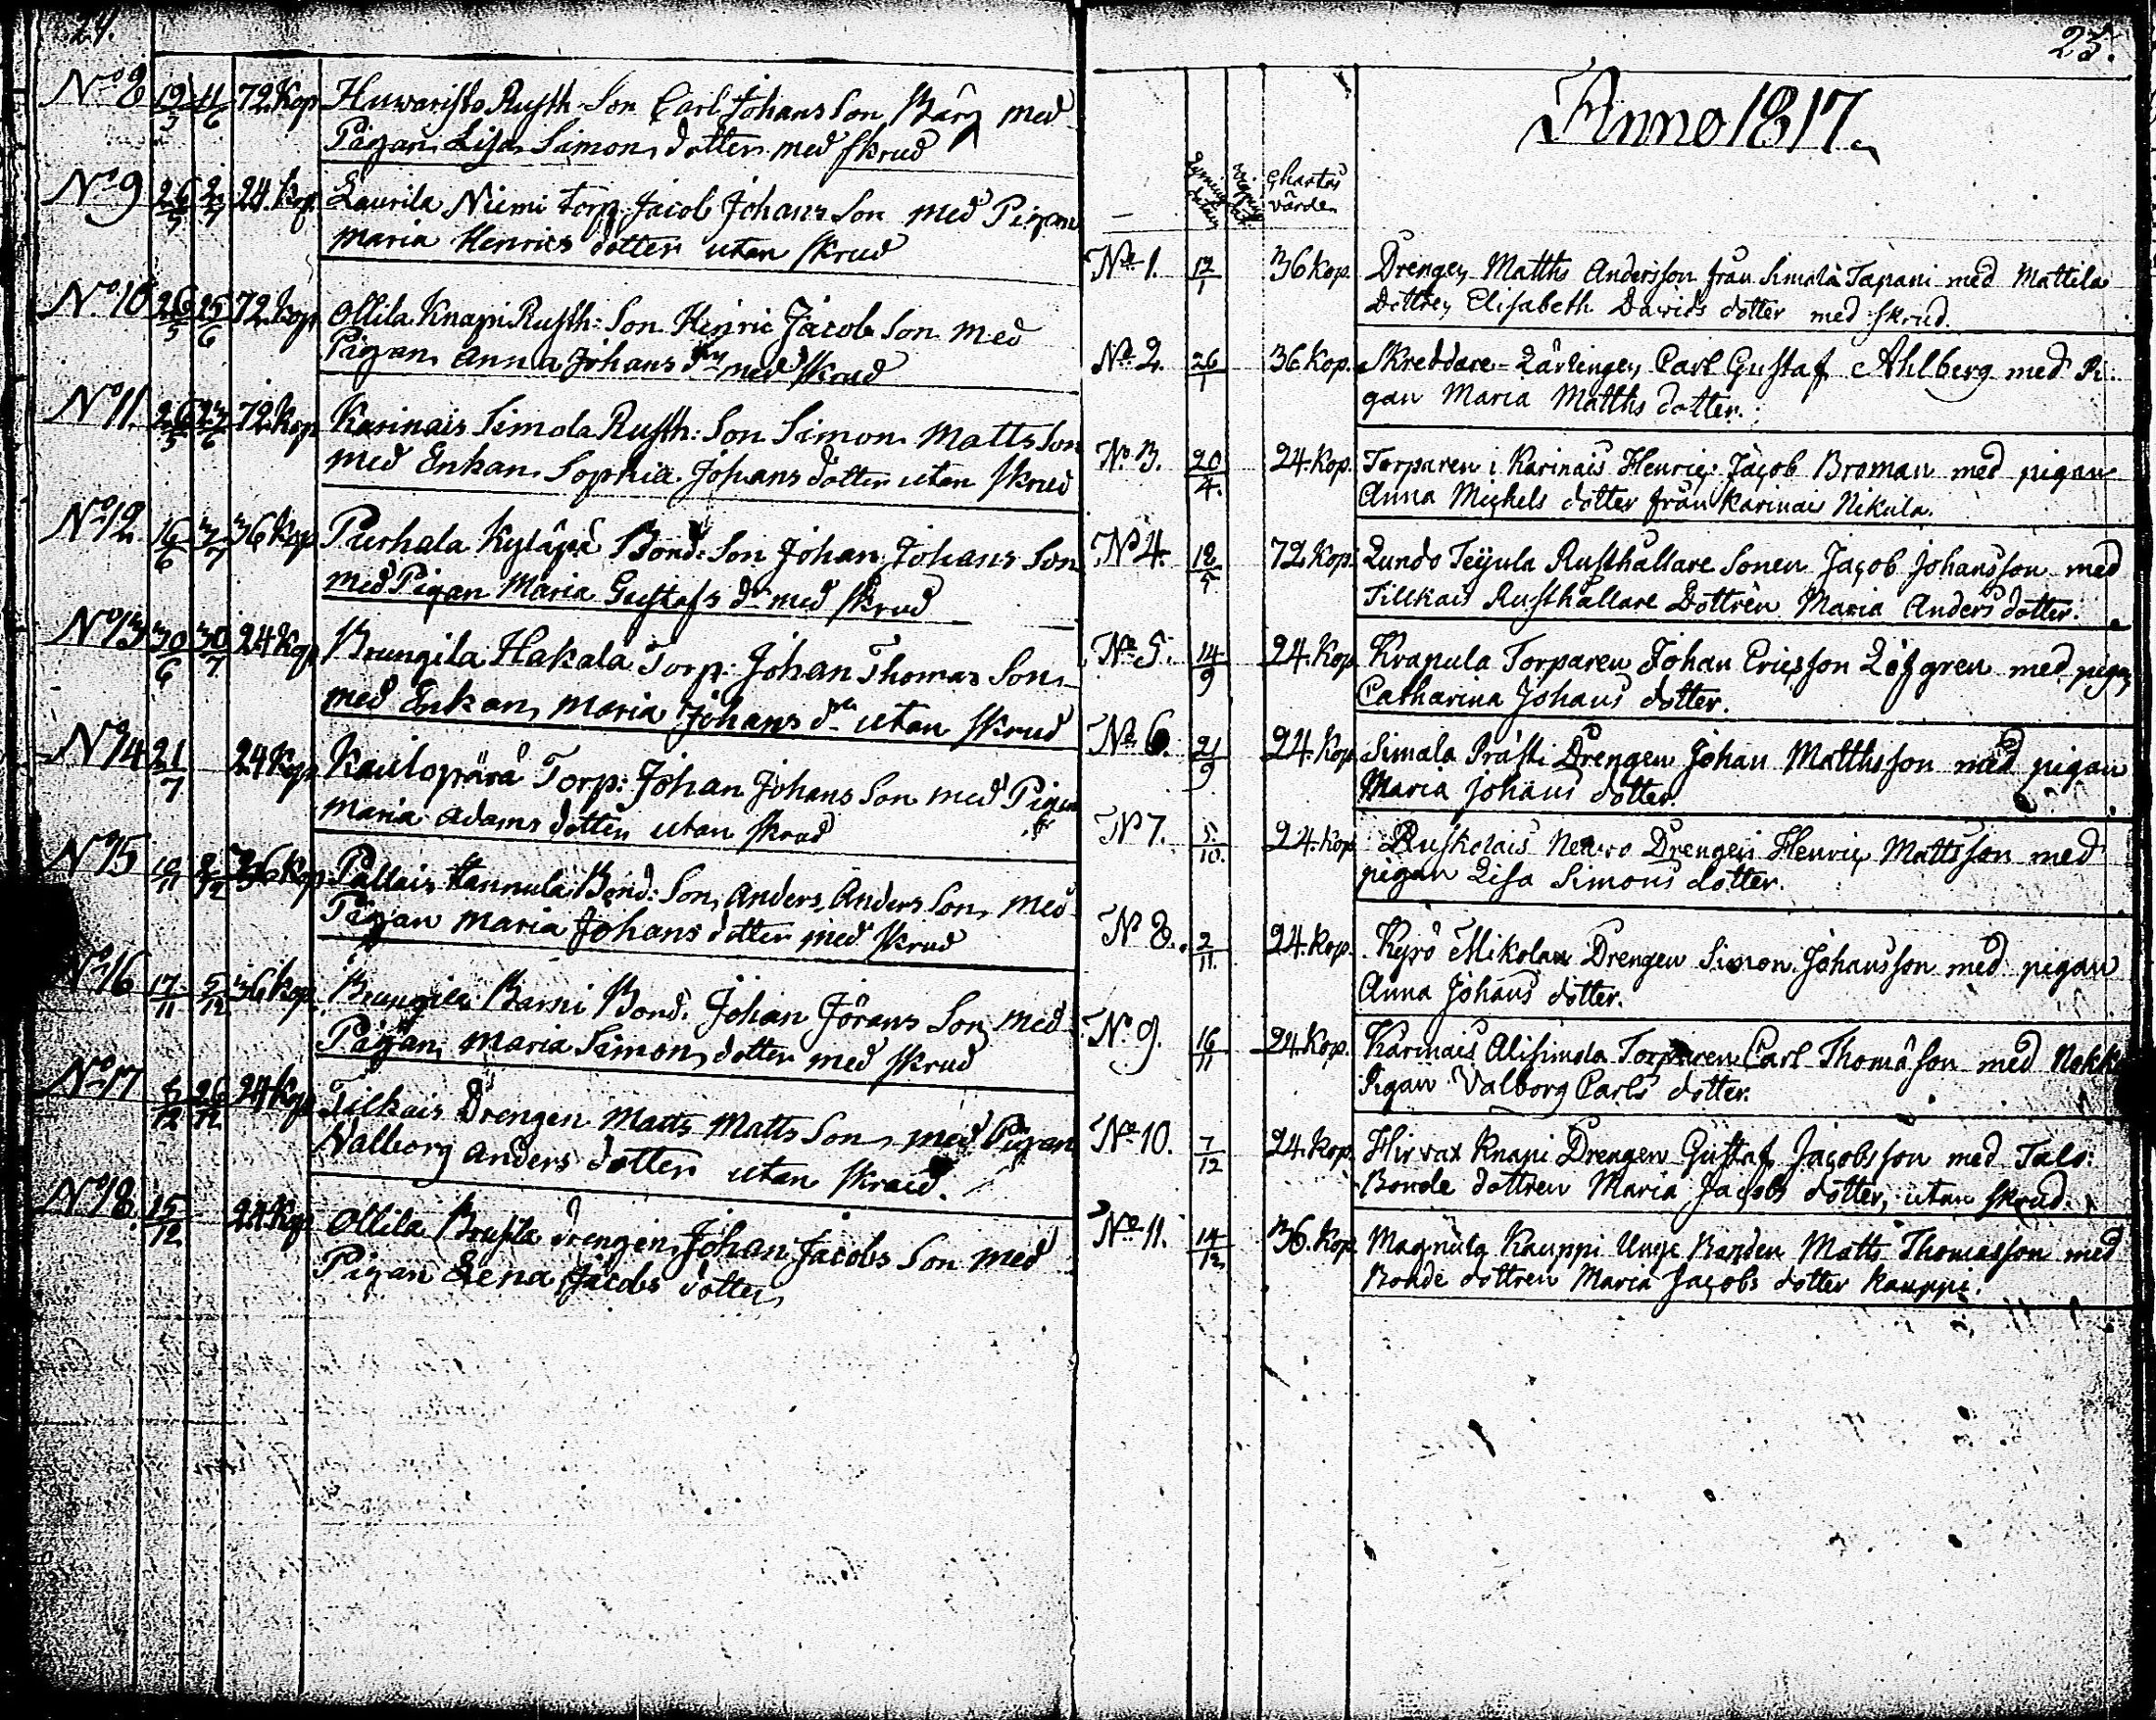 24.
No 8 19/5 11/6 72 Kop Huwaristo Rusth. Son Carl Johans Son Bärg med
Pigan Lisa Simons dotter med skrud
No 9 26/5 2/7 24. Kop Laurila Niemi Torp. Jacob Johans Son med Pigan
Maria Henrics dotter utan skrud
No 10 26/5 25/6 72 Kop Ollila Knapi Rusth: Son Henric Jacobs Son med
Pigan Anna Johans dr med skrud
No 11. 26/5 23/6 72 Kop Karinais Simola Rusth: Son Simon Matts Son
med Enkan Sophia Johans dotter utan skrud
No 12 16/6 7/7 36 Kop Purhala Kyläpä Bond: Son Johan Johans Son
med Pigan Maria Gustafs dr med skrud
No 13 30/6 30/7 24 Kop Brungila Hakala Torp: Johan Thomas Son
med Enkan Maria Johans dr utan skrud
No 14 21/7 24 Kop Kaulopärä Torp: Johan Johans Son med Pigan
Maria Adams dotter utan skrud
No 15 10/11 36 Kop Pallais Hannula Bond: Son Anders Anders Son med
Pigan Maria Johans dotter med skrud
No 16 17/11 5/12 36 Kop. Brungila Bond. Johan Jörans Son med
Pigan Maria Simons dotter med skrud
No 17 8/12 26/12 24 Kop Tilkais Drengen Matts Matts Son med Pigan
Valborg Anders dotter utan skrud.
No 18. 15/12 24 Kop Ollila Drengen Johan Jacobs Son med
Pigan Lena Jacobs dotter
25.
Anno 1817.
Charta
värde
No 1. 12/1 36 Kop. Drengen Matths Andersson från Simola Tapani med Mattila
Dottren Elisabeth Davids dotter med skrud.
No 2. 26/1 36 Kop. Skreddare-Lärlingen Carl Gustaf Ahlberg med Pi-
gan Maria Matths dotter.
No 3. 20/4. 24. Kop. Torparen i Karinais Henric Jacob Broman med pigan
Anna Michels dotter från Karinais Nikula.
No 4. 18/5 72 Kop. Lundo Teijula Rusthållare Sonen Jacob Johansson med
Tillkais Rusthållare Dottren Maria Anders dotter.
No 5. 14/9 24. Kop Krapula Torparen Johan Ericsson Löfgren med pigan
Catharina Johans dotter.
No 6. 21/9 24. Kop Simala Drengen Johan Matthsson med pigan
Maria Johans dotter.
No 7. 5/10. 24. Kop Ruskolais Drengen Henric Mattsson med
pigan Lisa Simons dotter.
No 8. 2/11. 24. Kop. Kyrö Mikolan Drengen Simon Johansson med pigan
Anna Johans dotter.
No 9. 16/11 24 Kop. Karinais Alisimola Torparen Carl Thomåson med
Pigan Valborg Carls dotter.
No 10. 7/12 24. Kop. Hirvax Knapi Drengen Gustaf Jacobsson med Talo:
Bonde dottren Maria Jacobs dotter, utan skrud.
No 11. 14/12 36. Kop. Magnula Kauppi Unge Bonden Matts Thomasson med
Bonde dottren Maria Jacobs dotter Kauppi.